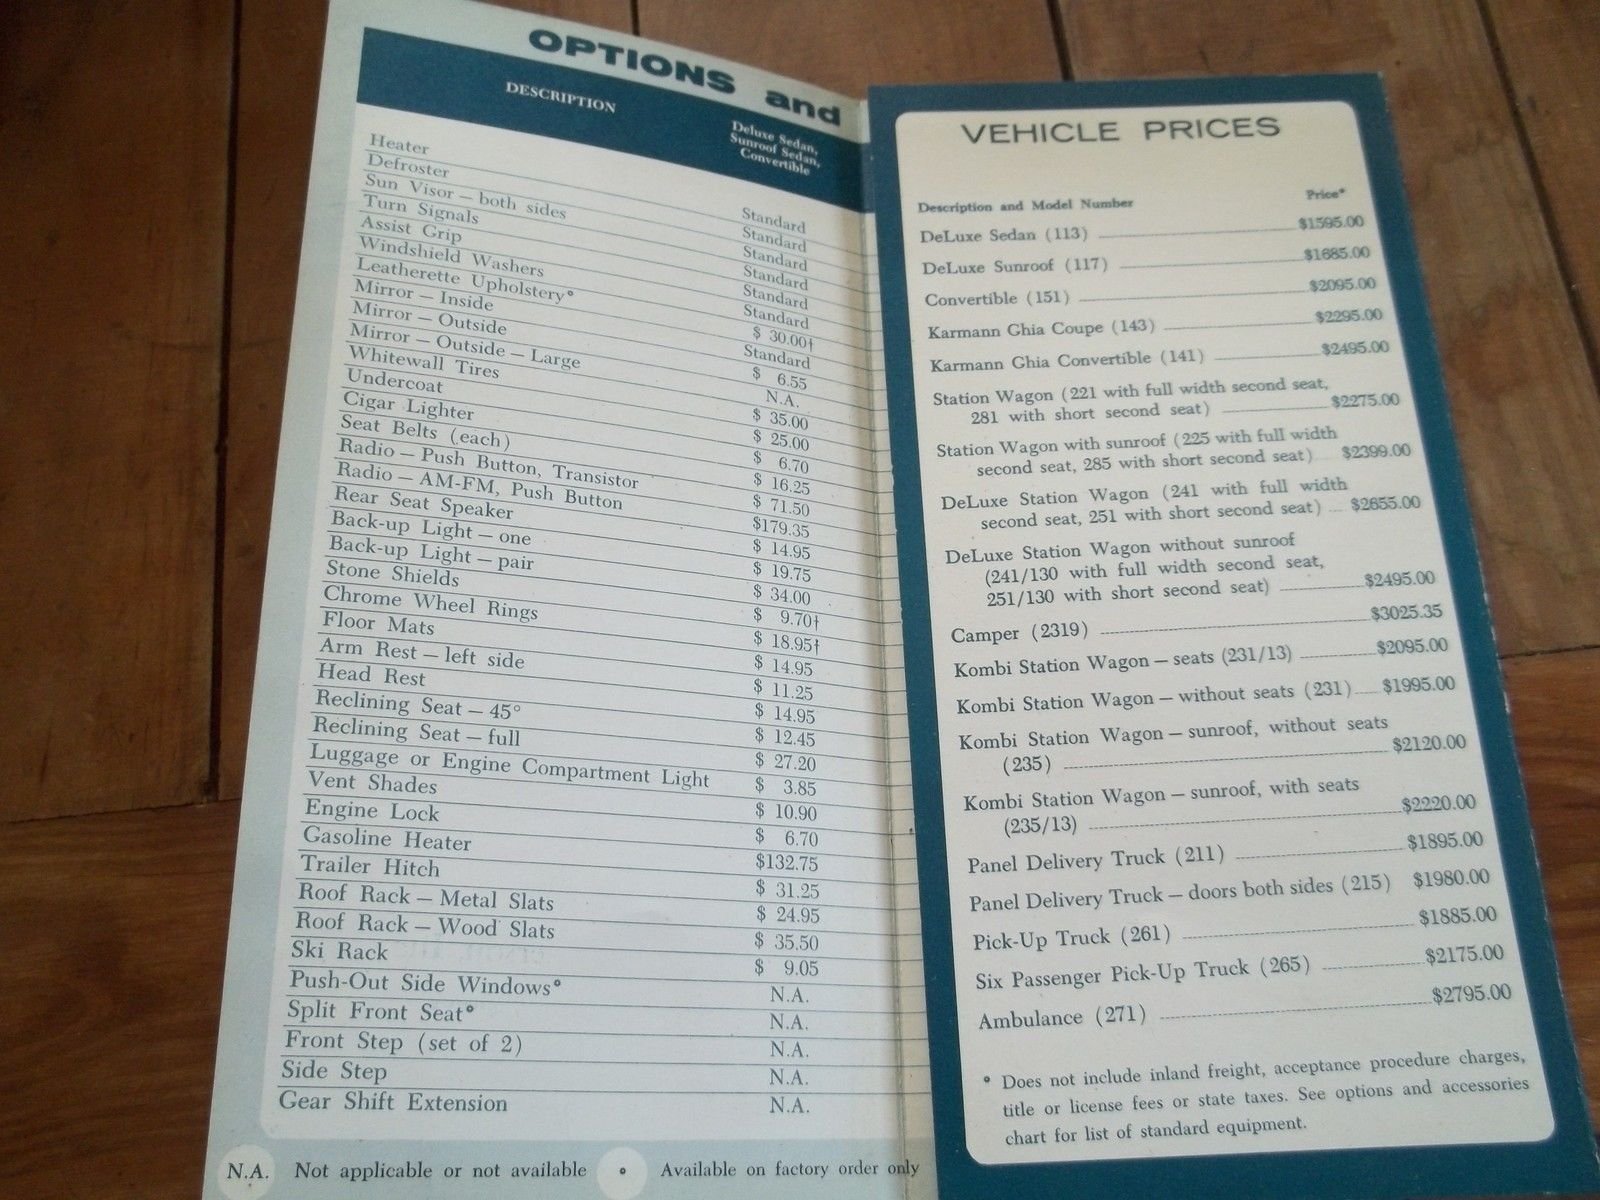 OPTIONS and
DESCRIPTION
Deluxe Sedan,
Sunroof Sedan,
Convertible
Heater Standard
Defroster Standard
Sun Visor — both sides Standard
Turn Signals Standard
Assist Grip Standard
Windshield Washers Standard
Leatherette Upholstery° $ 30.00†
Mirror — Inside Standard
Mirror — Outside $ 6.55
Mirror — Outside — Large N.A.
Whitewall Tires $ 35.00
Undercoat $ 25.00
Cigar Lighter $ 6.70
Seat Belts (each) $ 16.25
Radio — Push Button, Transistor $ 71.50
Radio — AM-FM, Push Button $179.35
Rear Seat Speaker $ 14.95
Back-up Light — one $ 19.75
Back-up Light — pair $ 34.00
Stone Shields $ 9.70†
Chrome Wheel Rings $ 18.95†
Floor Mats $ 14.95
Arm Rest — left side $ 11.25
Head Rest $ 14.95
Reclining Seat — 45° $ 12.45
Reclining Seat — full $ 27.20
Luggage or Engine Compartment Light $ 3.85
Vent Shades $ 10.90
Engine Lock $ 6.70
Gasoline Heater $132.75
Trailer Hitch $ 31.25
Roof Rack — Metal Slats $ 24.95
Roof Rack — Wood Slats $ 35.50
Ski Rack $ 9.05
Push-Out Side Windows° N.A.
Split Front Seat° N.A.
Front Step (set of 2) N.A.
Side Step N.A.
Gear Shift Extension N.A.
N.A. Not applicable or not available ° Available on factory order only
VEHICLE PRICES
Description and Model Number Price°
DeLuxe Sedan (113) $1595.00
DeLuxe Sunroof (117) $1685.00
Convertible (151) $2095.00
Karmann Ghia Coupe (143) $2295.00
Karmann Ghia Convertible (141) $2495.00
Station Wagon (221 with full width second seat,
281 with short second seat) $2275.00
Station Wagon with sunroof (225 with full width
second seat, 285 with short second seat) $2399.00
DeLuxe Station Wagon (241 with full width
second seat, 251 with short second seat) $2655.00
DeLuxe Station Wagon without sunroof
(241/130 with full width second seat,
251/130 with short second seat) $2495.00
Camper (2319) $3025.35
Kombi Station Wagon — seats (231/13) $2095.00
Kombi Station Wagon — without seats (231) $1995.00
Kombi Station Wagon — sunroof, without seats
(235) $2120.00
Kombi Station Wagon — sunroof, with seats
(235/13) $2220.00
Panel Delivery Truck (211) $1895.00
Panel Delivery Truck — doors both sides (215) $1980.00
Pick-Up Truck (261) $1885.00
Six Passenger Pick-Up Truck (265) $2175.00
Ambulance (271) $2795.00
° Does not include inland freight, acceptance procedure charges,
title or license fees or state taxes. See options and accessories
chart for list of standard equipment.